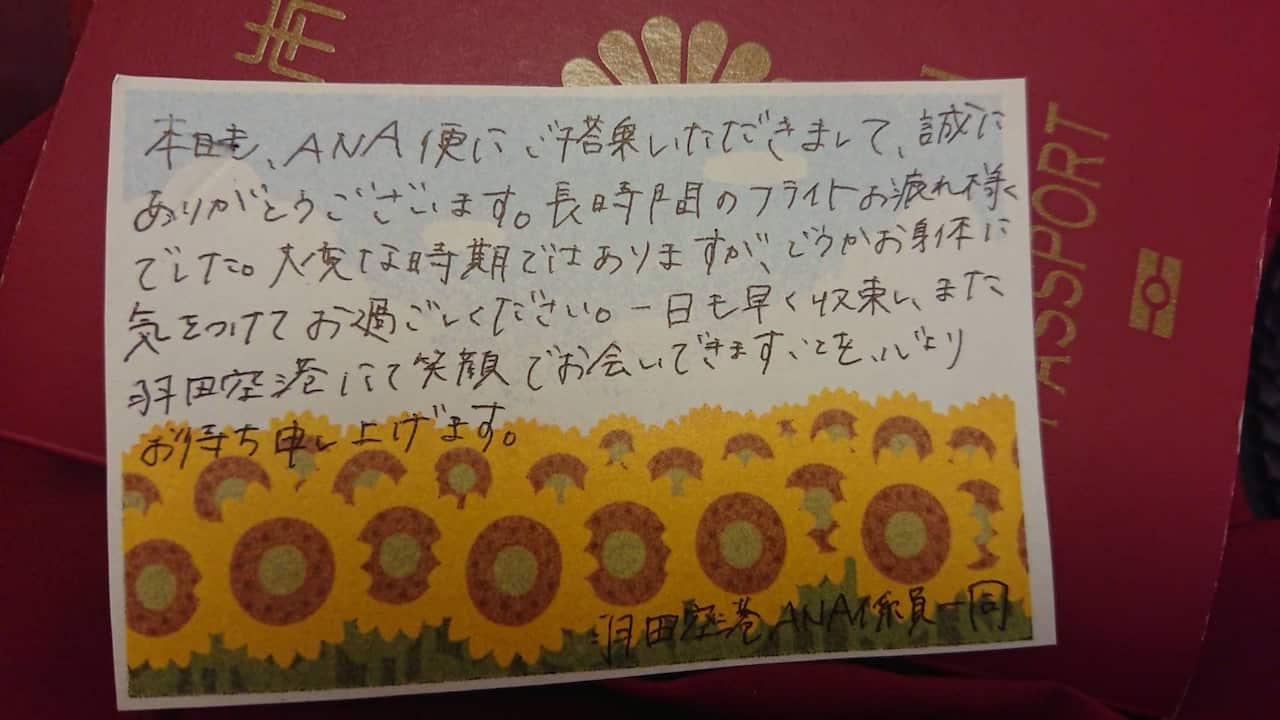 本日も、ANA便にご搭乗いただきまして、誠に
ありがとうございます。長時間のフライトお疲れ様
でした。大変な時期ではありますが、どうかお身体に
気をつけてお過ごしください。一日も早く収束し、また
羽田空港にて笑顔でお会いできますことを、心より
お待ち申し上げます。
羽田空港 ANA係員一同
PASSPORT